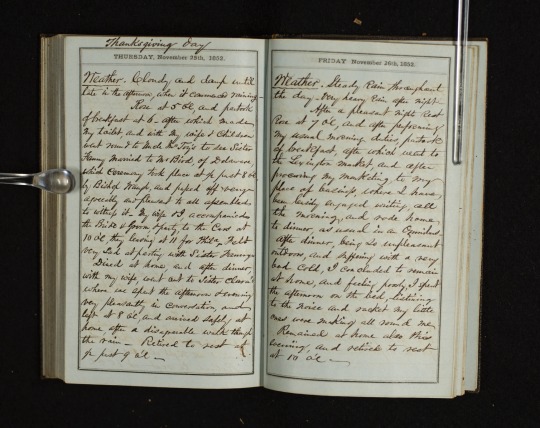 Thanksgiving Day
THURSDAY, November 25th, 1852.
Weather. Cloudy and damp until
late in the afternoon, when it commenced raining
Rose at 5 OC, and partook
of breakfast at 6. After which made
my toilet and with my wife & Children
went round to Uncle to see Sister
Fanny married to Mr Bird, of Delaware
which Ceremony took place at ½ past 8 OC
by Bishop Waugh, and passed off very
agreeably and pleasant to all assembled
to witness it. My wife & I accompanied
the Bride & Groom & party, to the Cars at
10 OC they leaving at 11 for Phila. Felt
very Sad at parting with Sister
Dined at home and after dinner,
with my wife went out to Sister
where we spent the afternoon & evening
very pleasantly in conversation, and
left at 8 OC and arrived safely at
home after a disagreeable walk through
the rain — Retired to rest at
½ past 9 OC —
FRIDAY November 26th, 1852.
Weather. Steady Rain throughout
the day. Very heavy Rain after night
After a pleasant night Rest
Rose at 7 OC, and after performing
my usual morning duties, partook
of breakfast, after which went to
the Lexington market, and after
processing my marketing to my
place of business, where I have
been busily engaged writing, all
the morning, and rode home
to dinner, as usual in an Omnibus.
After dinner, being so unpleasant
outdoors, and suffering with a very
bad Cold, I concluded to remain
at home, and feeling poorly, I spent
the afternoon on the bed, listening
to the noise and racket my little
ones were making all round me
Remained at home also this
evening, and retired to rest
at 10 OC —